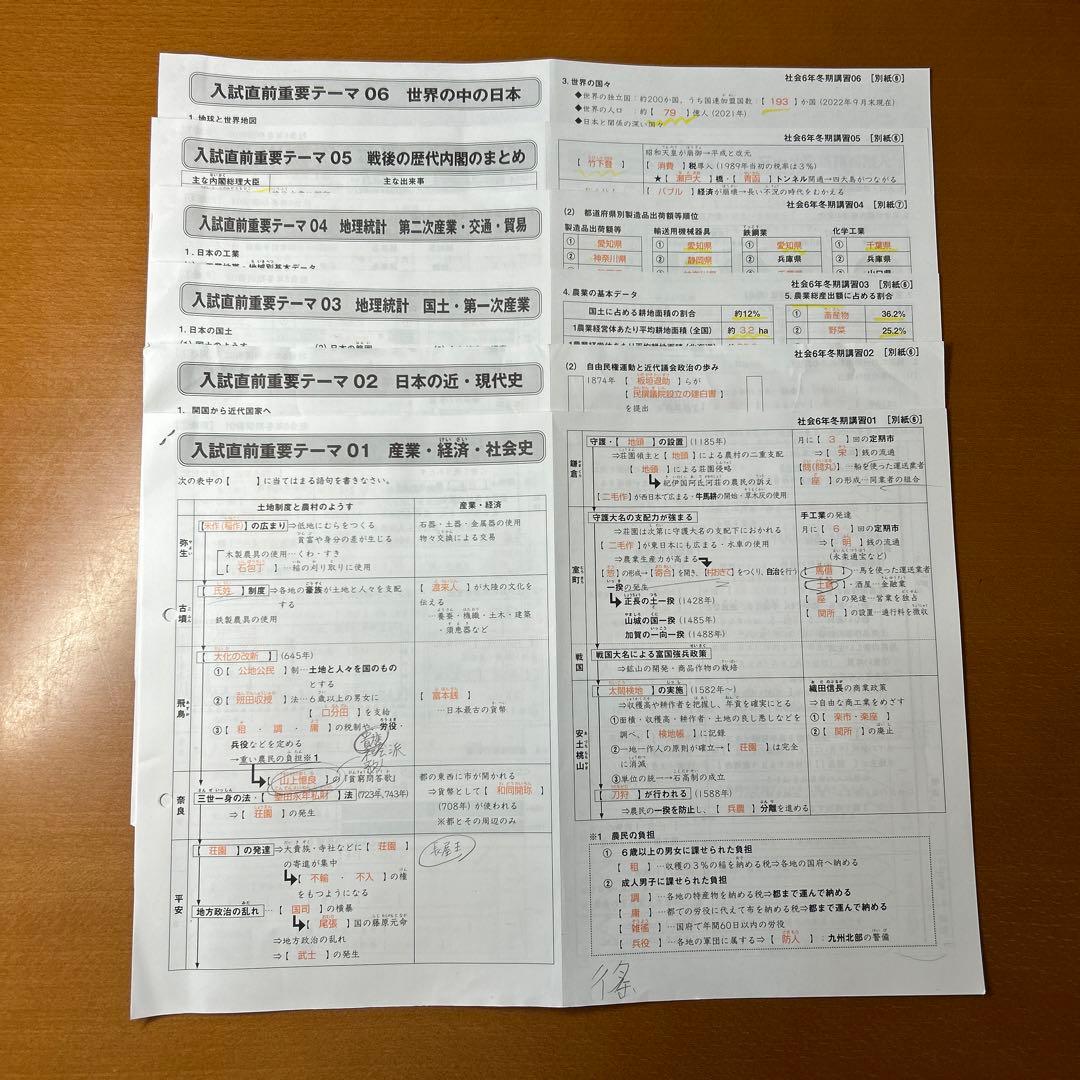 入試直前重要テーマ 06 世界の中の日本
1. 地球と世界地図
社会6年冬期講習06 [別紙⑥]
3. 世界の国々
◆世界の独立国：約200か国，うち国連加盟国数：【 193 】か国 (2022年9月末現在)
◆世界の人口 ： 約【 79 】億人 (2021年)
◆日本と関係の深い国々
入試直前重要テーマ 05 戦後の歴代内閣のまとめ
主な内閣総理大臣 主な出来事
社会6年冬期講習05 [別紙⑥]
【 竹下登 】
昭和天皇が崩御→平成と改元
【 消費 】税導入 (1989年当初の税率は3%)
★【 瀬戸大 】橋・【 青函 】トンネル開通→四大島がつながる
【 バブル 】経済が崩壊→長い不況の時代をむかえる
入試直前重要テーマ 04 地理統計 第二次産業・交通・貿易
1. 日本の工業
社会6年冬期講習04 [別紙⑦]
(2) 都道府県別製造品出荷額等順位
製造品出荷額等 輸送用機械器具 鉄鋼業 化学工業
① 愛知県 ① 愛知県 ① 愛知県 ① 千葉県
② 神奈川県 ② 静岡県 ② 兵庫県 ② 兵庫県
入試直前重要テーマ 03 地理統計 国土・第一次産業
1. 日本の国土
社会6年冬期講習03 [別紙⑥]
4. 農業の基本データ
国土に占める耕地面積の割合 約12%
1農業経営体あたり平均耕地面積 (全国) 約 3.2 ha
5. 農業総産出額に占める割合
① 畜産物 36.2%
② 野菜 25.2%
入試直前重要テーマ 02 日本の近・現代史
1. 開国から近代国家へ
社会6年冬期講習02 [別紙⑥]
(2) 自由民権運動と近代議会政治の歩み
1874年 【 板垣退助 】らが
【 民撰議院設立の建白書 】
を提出
社会6年冬期講習01 [別紙⑥]
入試直前重要テーマ 01 産業・経済・社会史
次の表中の【 】に当てはまる語句を書きなさい。
土地制度と農村のようす 産業・経済
弥生
【米作(稲作)】の広まり⇒低地にむらをつくる
貧富や身分の差が生じる
木製農具の使用…くわ・すき
【 石包丁 】…稲の刈り取りに使用
石器・土器・金属器の使用
物々交換による交易
古墳
【 氏姓 】制度⇒各地の豪族が土地と人々を支配
する
鉄製農具の使用
【 渡来人 】が大陸の文化を
伝える
…養蚕・機織・土木・建築
・須恵器など
飛鳥
【 大化の改新 】(645年)
①【 公地公民 】制…土地と人々を国のもの
とする
②【 班田収授 】法…6歳以上の男女に
【 口分田 】を支給
③【 租 ・ 調 ・ 庸 】の税制や、労役・
兵役などを定める
→重い農民の負担※1
【 山上憶良 】の『貧窮問答歌』
【 富本銭 】
…日本最古の貨幣
奈良
三世一身の法・【 墾田永年私財 】法 (723年,743年)
⇒【 荘園 】の発生
都の東西に市が開かれる
⇒貨幣として【 和同開珎 】
(708年) が使われる
※都とその周辺のみ
平安
【 荘園 】の発達⇒大貴族・寺社などに【 荘園 】
の寄進が集中
【 不輸 ・ 不入 】の権
をもつようになる
長屋王
地方政治の乱れ…【 国司 】の横暴
【 尾張 】国の藤原元命
⇒地方政治の乱れ
⇒【 武士 】の発生
鎌倉
守護・【 地頭 】の設置 (1185年)
⇒荘園領主と【 地頭 】による農村の二重支配
【 地頭 】による荘園侵略
紀伊国阿氐河荘の農民の訴え
【 二毛作 】が西日本で広まる・牛馬耕の開始・草木灰の使用
月に【 3 】回の定期市
⇒【 宋 】銭の流通
【問(問丸)】…船を使った運送業者
【 座 】の形成…同業者の組合
室町
守護大名の支配力が強まる
⇒荘園は次第に守護大名の支配下におかれる
【 二毛作 】が東日本にも広まる・水車の使用
⇒農業生産力が高まる
【 惣 】の形成→【 寄合 】を開き、【村おきて】をつくり、自治を行う
一揆の発生
正長の土一揆 (1428年)
山城の国一揆 (1485年)
加賀の一向一揆 (1488年)
手工業の発達
月に【 6 】回の定期市
⇒【 明 】銭の流通
(永楽通宝など)
【 馬借 】…馬を使った運送業者
【 土倉 】・酒屋…金融業
【 座 】の発達…営業を独占
【 関所 】の設置…通行料を徴収
戦国
戦国大名による富国強兵政策
⇒鉱山の開発・商品作物の栽培
安土桃山
【 太閤検地 】の実施 (1582年～)
⇒収穫高や耕作者を把握し、年貢を確実にとる
①面積・収穫高・耕作者・土地の良し悪しなどを
調べ、【 検地帳 】に記録
②一地一作人の原則が確立→【 荘園 】は完全
に消滅
③単位の統一→石高制の成立
【 刀狩 】が行われる (1588年)
⇒農民の一揆を防止し、【 兵農 】分離を進める
織田信長の商業政策
⇒自由な商工業をめざす
①【 楽市・楽座 】
②【 関所 】の廃止
※1 農民の負担
① 6歳以上の男女に課せられた負担
【 租 】…収穫の3%の稲を納める税⇒各地の国府へ納める
② 成人男子に課せられた負担
【 調 】…各地の特産物を納める税⇒都まで運んで納める
【 庸 】…都での労役に代えて布を納める税⇒都まで運んで納める
【 雑徭 】…国府で年間60日以内の労役
【 兵役 】…各地の軍団に属する⇒【 防人 】：九州北部の警備